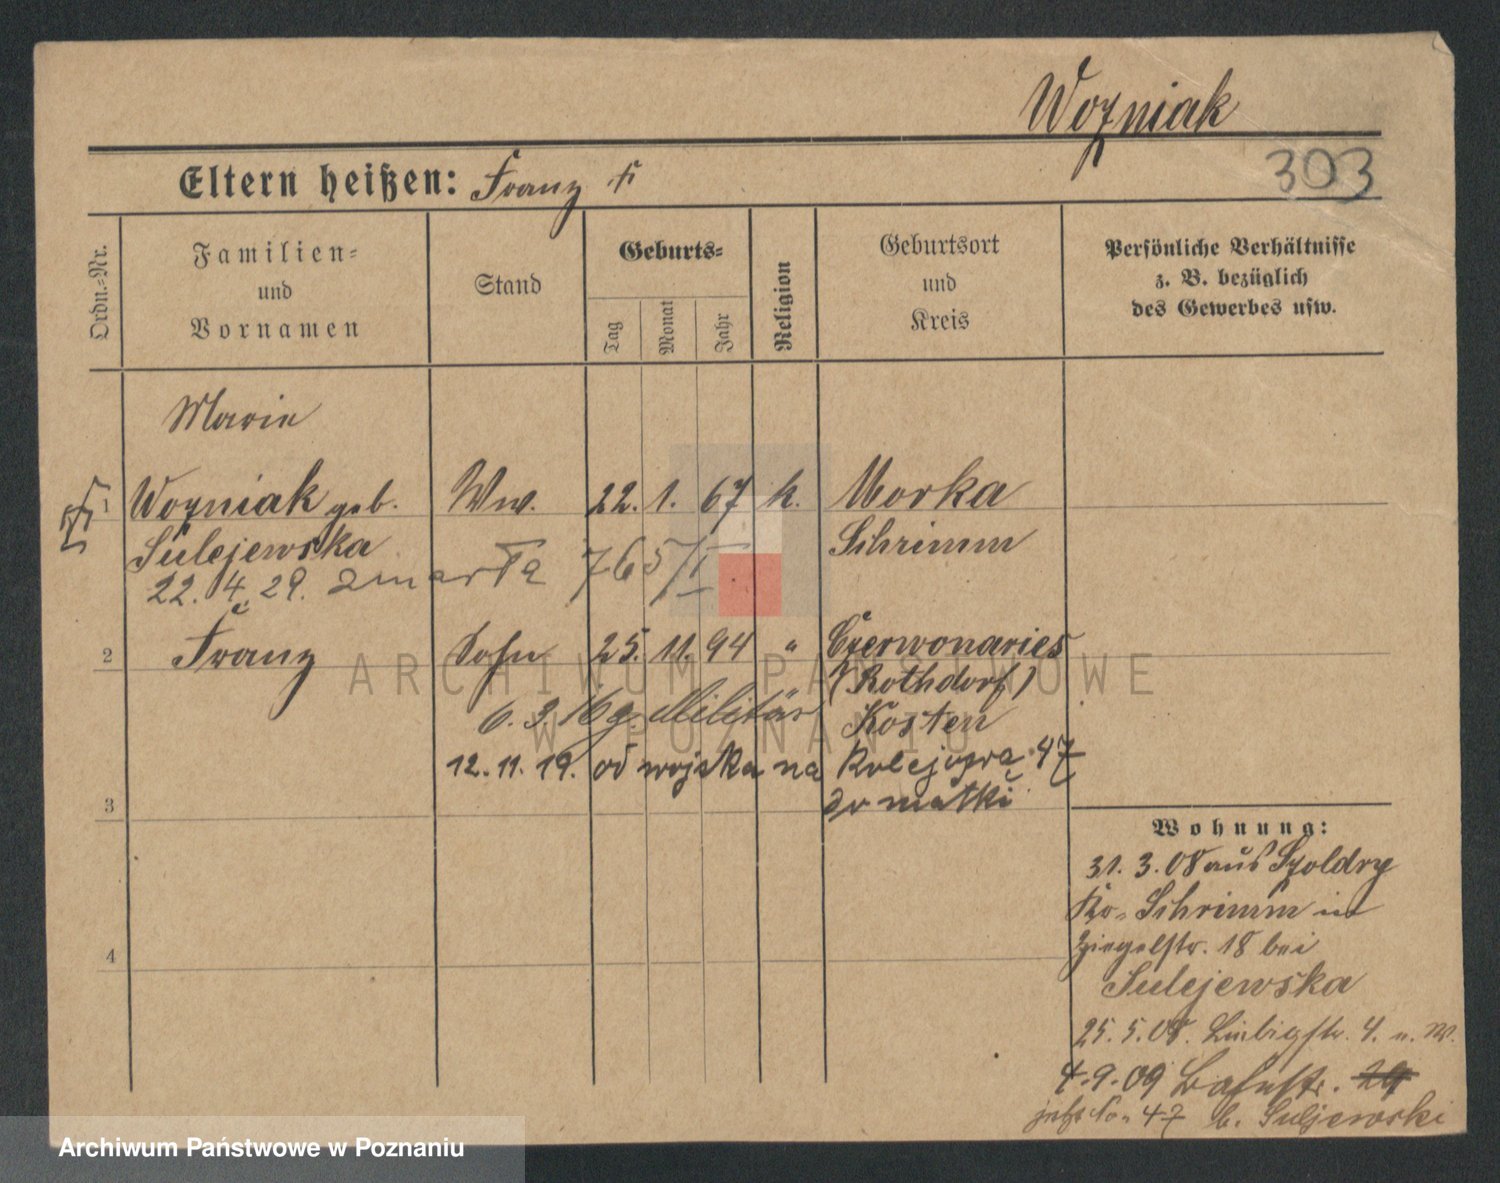 Wozniak
303
Eltern heißen: Franz †
Ordn.-Nr.
Familien-
und
Vornamen
Stand
Geburts-
Tag
Monat
Jahr
Religion
Geburtsort
und
Kreis
Persönliche Verhältnisse
z. B. bezüglich
des Gewerbes usw.
Marie
1 Wozniak geb. Ww. 22. 1. 67 k. Morka
Sulejewska Schrimm
22. 4. 29. zmarła 765/I
2 Franz Sohn 25. 11. 94 " Czerwonawies
(Rothdorf)
6. 3. 16 z. Militär Kosten
12. 11. 19. od wojska na Kolejowa 47
do matki
3
4
Wohnung:
31. 3. 08 aus Szoldry
Kr. Schrimm in
Ziegelstr. 18 bei
Sulejewska
25. 5. 08. Liebigstr. 4. n. W.
4.9.09 Bahnstr. 29
jetzt No. 47 b. Suljewski
ARCHIWUM PAŃSTWOWE
W POZNANIU
Archiwum Państwowe w Poznaniu